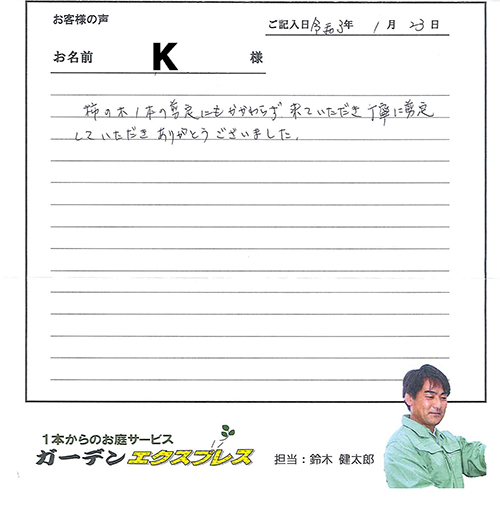 お客様の声
ご記入日 令和3年 1月 23日
お名前 K 様
柿の木1本の剪定にもかかわらず 来ていただき 丁寧に剪定
していただき ありがとうございました。
1本からのお庭サービス
ガーデンエクスプレス
担当：鈴木 健太郎